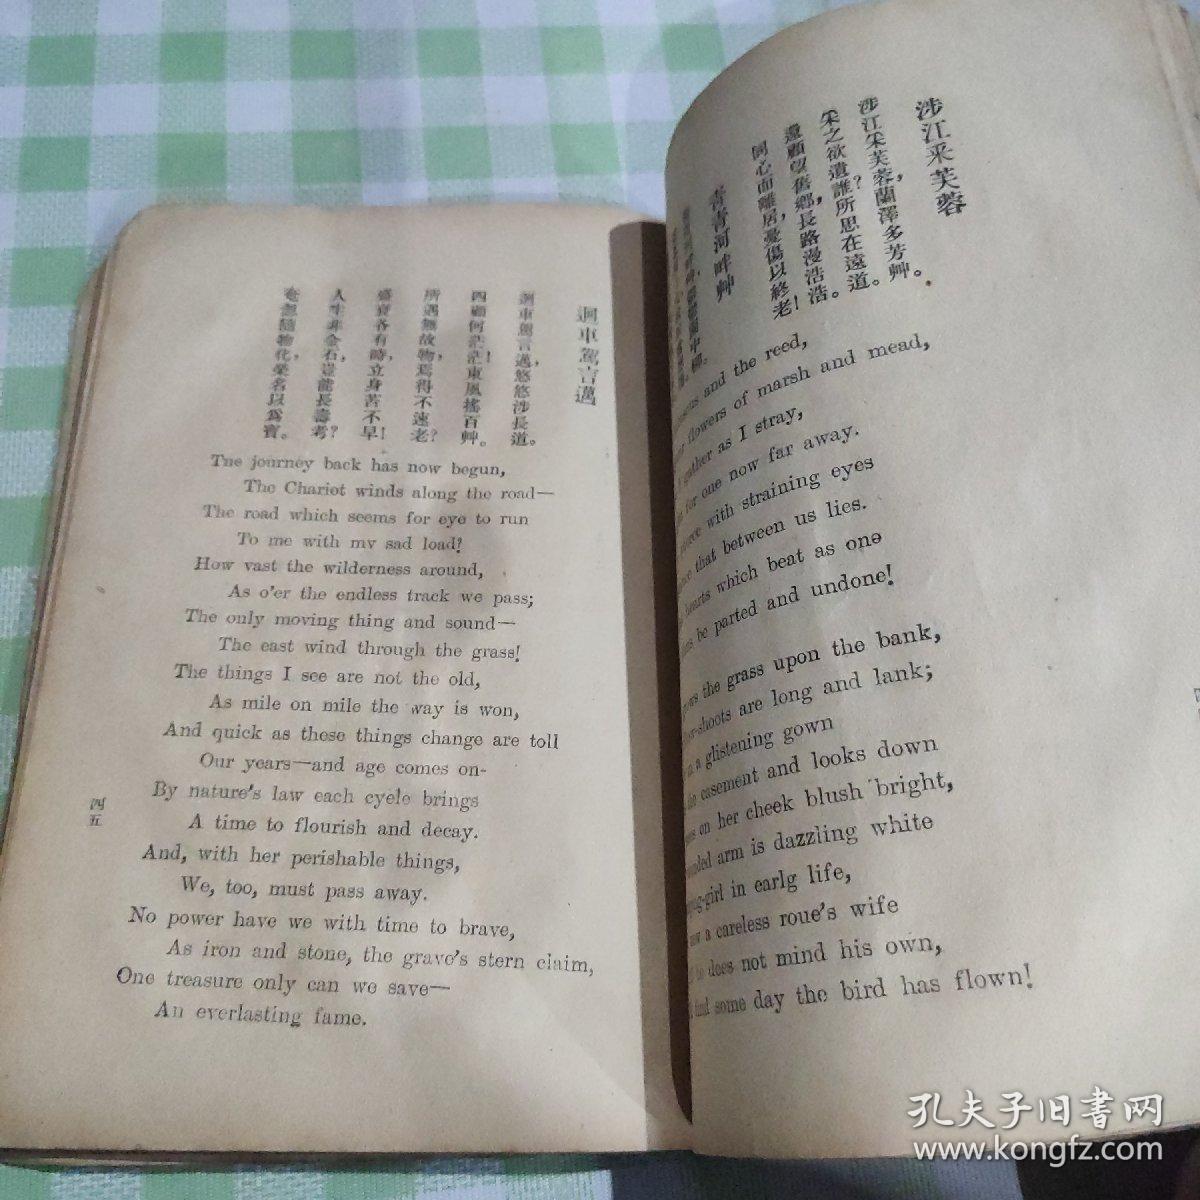 涉江采芙蓉
涉江采芙蓉，蘭澤多芳艸。
采之欲遺誰？所思在遠道。
還顧望舊鄉，長路漫浩浩。
同心而離居，憂傷以終老！
青青河畔艸
and the reed,
flowers of marsh and mead,
gather as I stray,
for one now far away.
with straining eyes
that between us lies.
hearts which beat as one
be parted and undone!
the grass upon the bank,
-shoots are long and lank;
in a glistening gown
casement and looks down
on her cheek blush bright,
arm is dazzling white
-girl in earlg life,
a careless roue's wife
does not mind his own,
find some day the bird has flown!
迴車駕言邁
迴車駕言邁，悠悠涉長道。
四顧何茫茫！東風搖百艸。
所遇無故物，焉得不速老？
盛衰各有時，立身苦不早！
人生非金石，豈能長壽考？
奄忽隨物化，榮名以爲寶。
Tne journey back has now begun,
The Chariot winds along the road—
The road which seems for eye to run
To me with my sad load!
How vast the wilderness around,
As o'er the endless track we pass;
The only moving thing and sound—
The east wind through the grass!
The things I see are not the old,
As mile on mile the way is won,
And quick as these things change are toll
Our years—and age comes on-
By nature's law each cycle brings
A time to flourish and decay.
And, with her perishable things,
We, too, must pass away.
No power have we with time to brave,
As iron and stone, the grave's stern claim,
One treasure only can we save—
An everlasting fame.
四五
孔夫子旧书网
www.kongfz.com